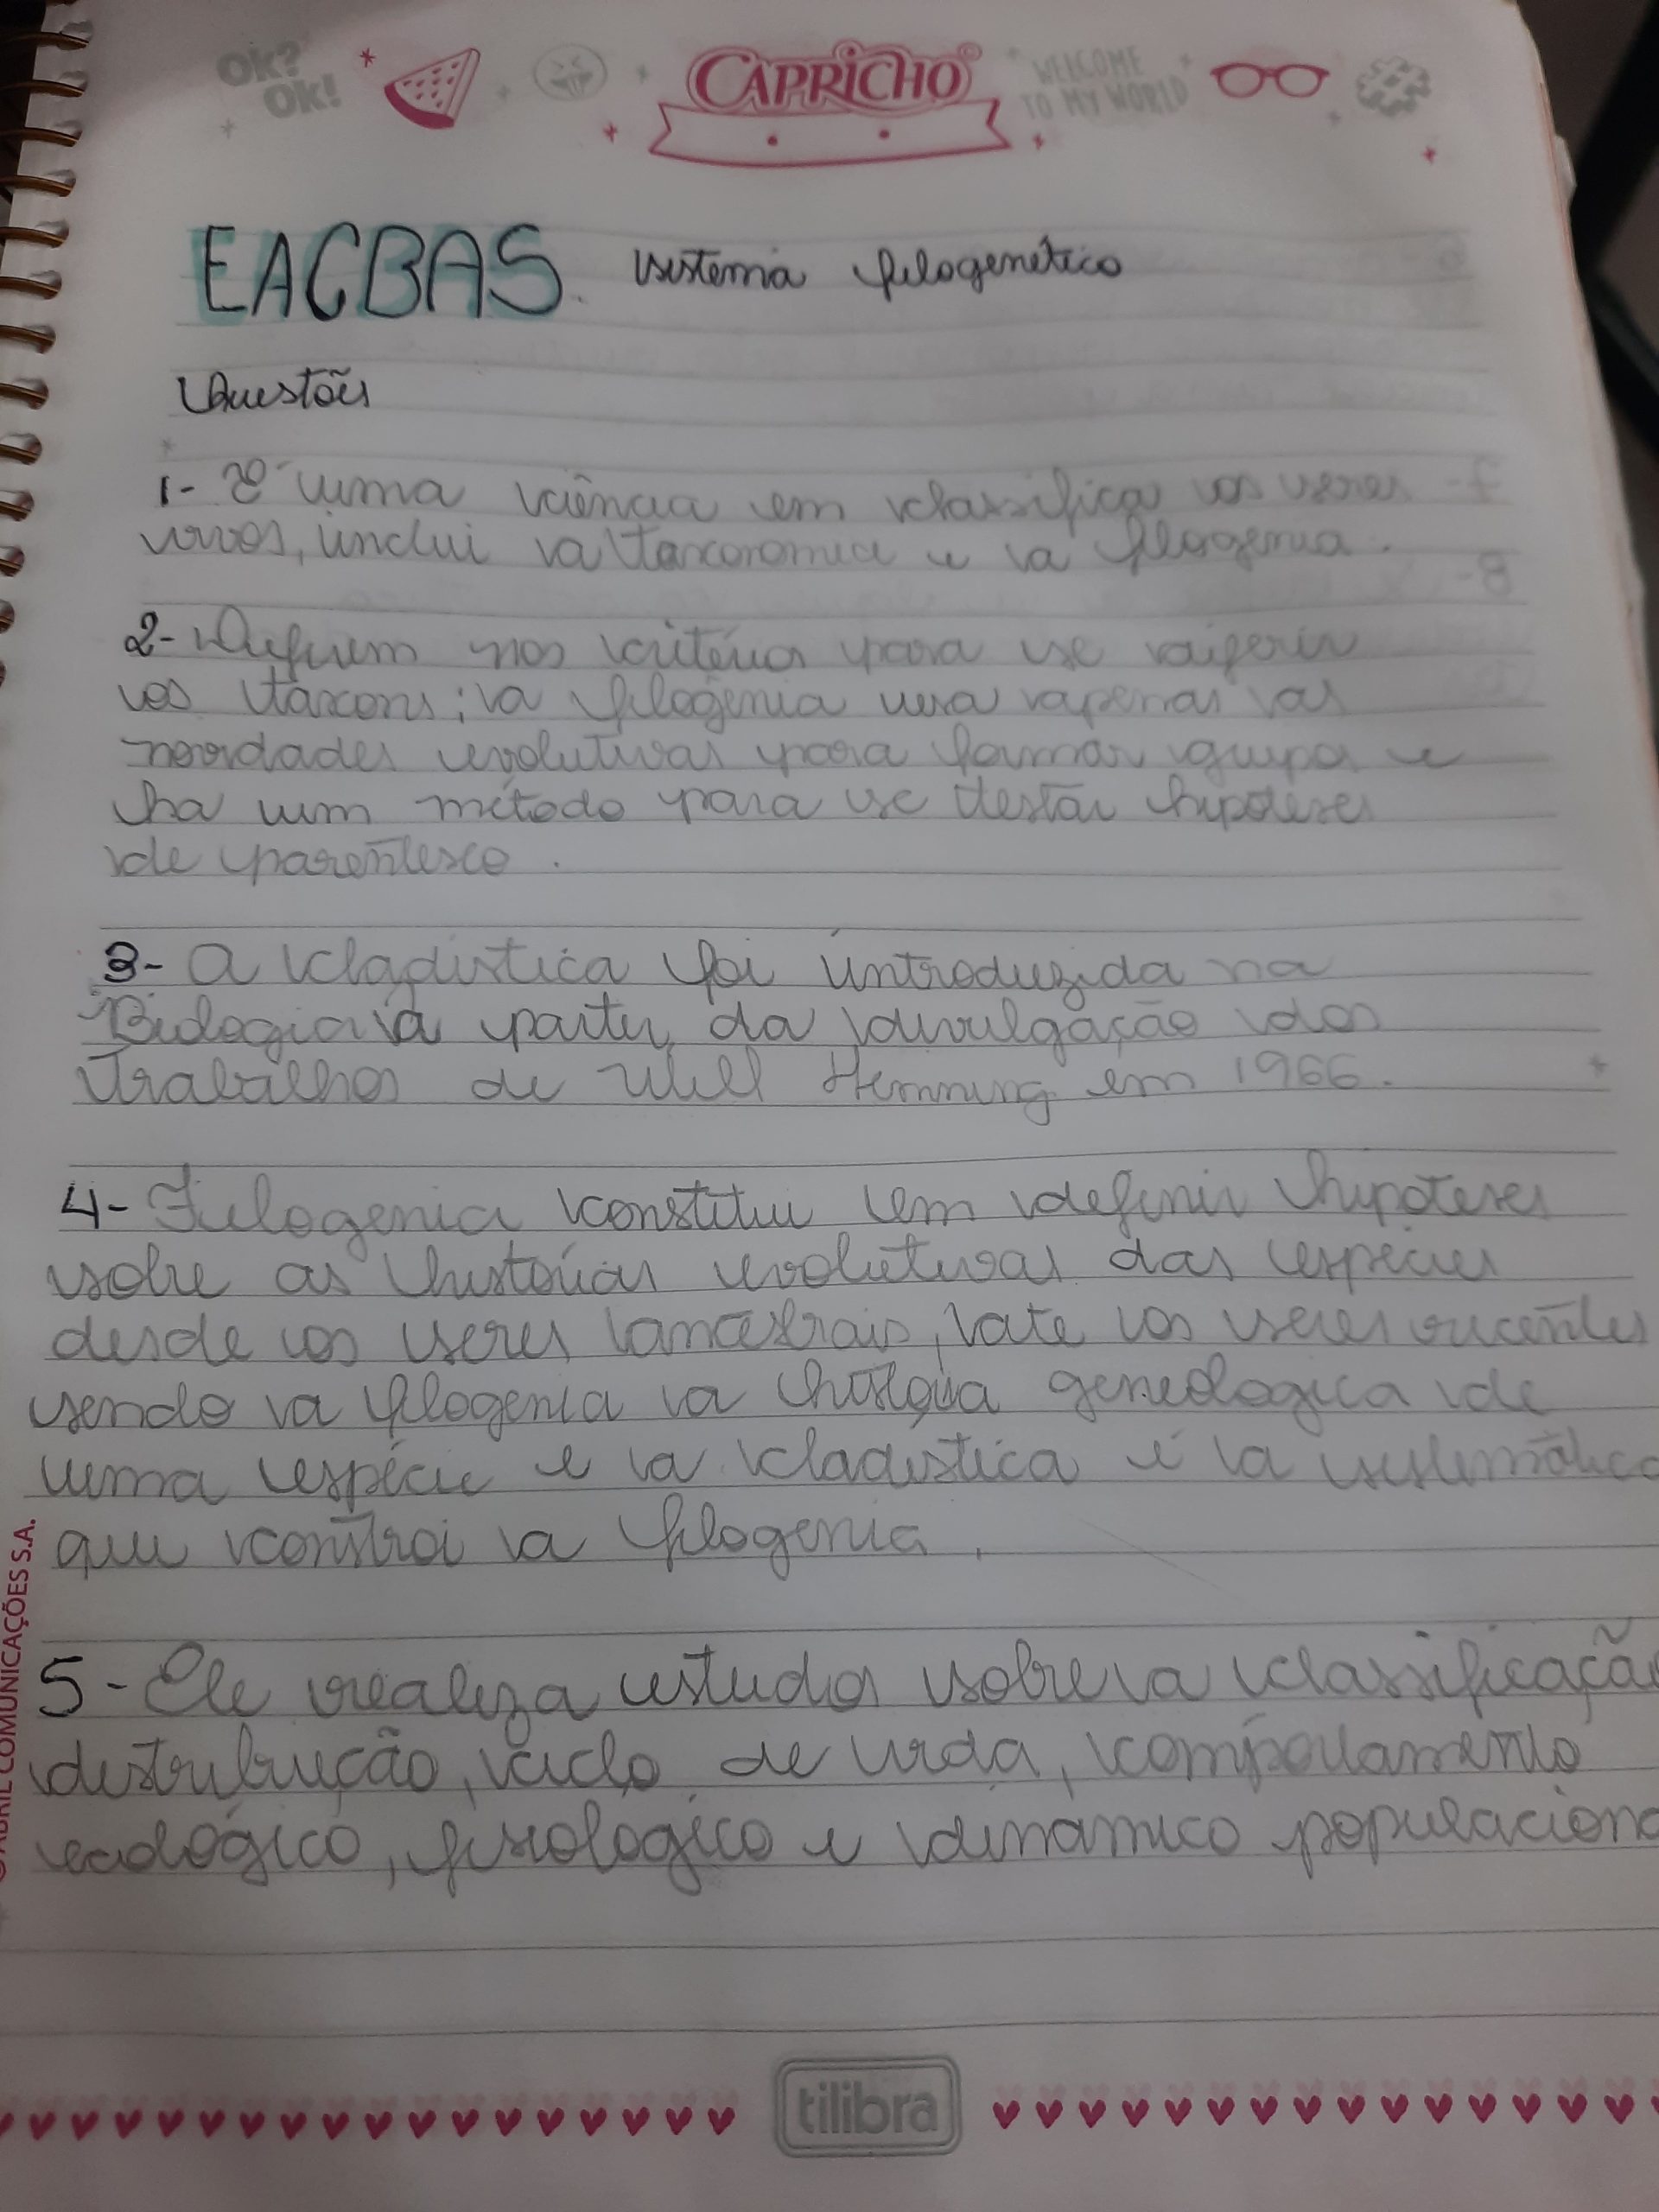 Ok? Ok!
CAPRICHO
WELCOME TO MY WORLD
EACBAS. sistema filogenético
Questões
1- É uma ciência em classifica os seres
vivos, inclui a taxonomia e a filogenia.
2- Diferem nos critérios para se
os táxons; a filogênia usa apenas as
novidades evolutivas para formar grupos e
ha um método para se testar hipóteses
de parentesco.
3- A cladistica foi introduzida na
Biologia a partir da divulgação dos
trabalhos de Will Henning em 1966.
4- Filogenia constitui em definir hipoteses
sobre as histórias evolutivas das espécies
desde os seres ancestrais, ate os seres recentes
sendo a filogenia a história geneologica de
uma espécie e a cladistica é a sistemática
que constroi a filogenia.
5- Ele realiza estudos sobre a classificação
distribuição, ciclo de vida, comportamento
ecológico, fisiologico e dinâmico populaciona
ABRIL COMUNICAÇÕES S.A.
tilibra